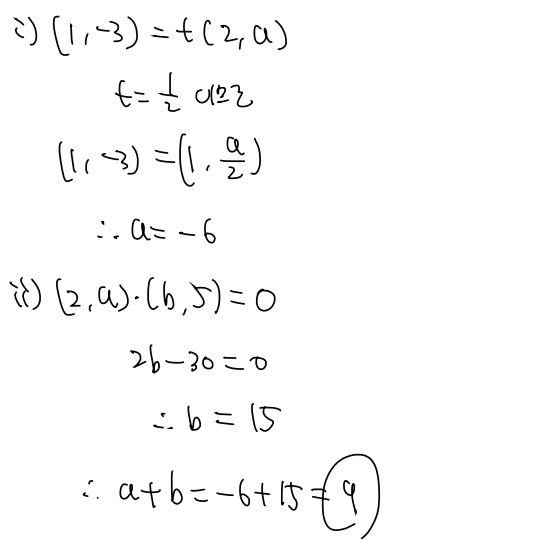 i) (1, -3) = t(2, a)
t = 1/2 이므로
(1, -3) = (1, a/2)
∴ a = -6
ii) (2, a)·(b, 5) = 0
2b - 30 = 0
∴ b = 15
∴ a + b = -6 + 15 = 9